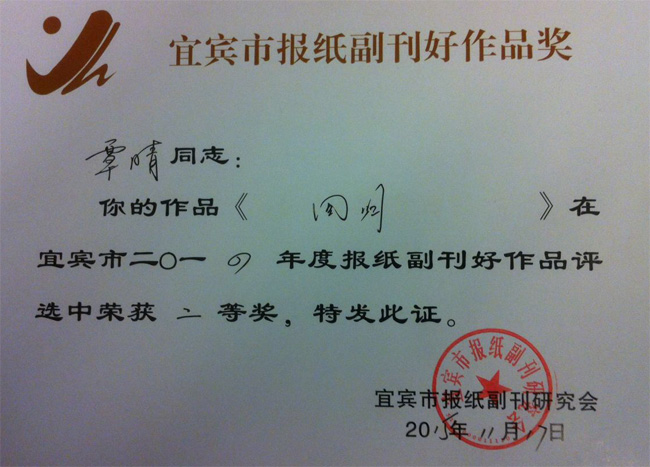 宜宾市报纸副刊好作品奖
覃晴同志：
你的作品《 回归 》在
宜宾市二〇一四年度报纸副刊好作品评
选中荣获二等奖，特发此证。
宜宾市报纸副刊研究会
宜宾市报纸副刊研究会
2015年11月17日